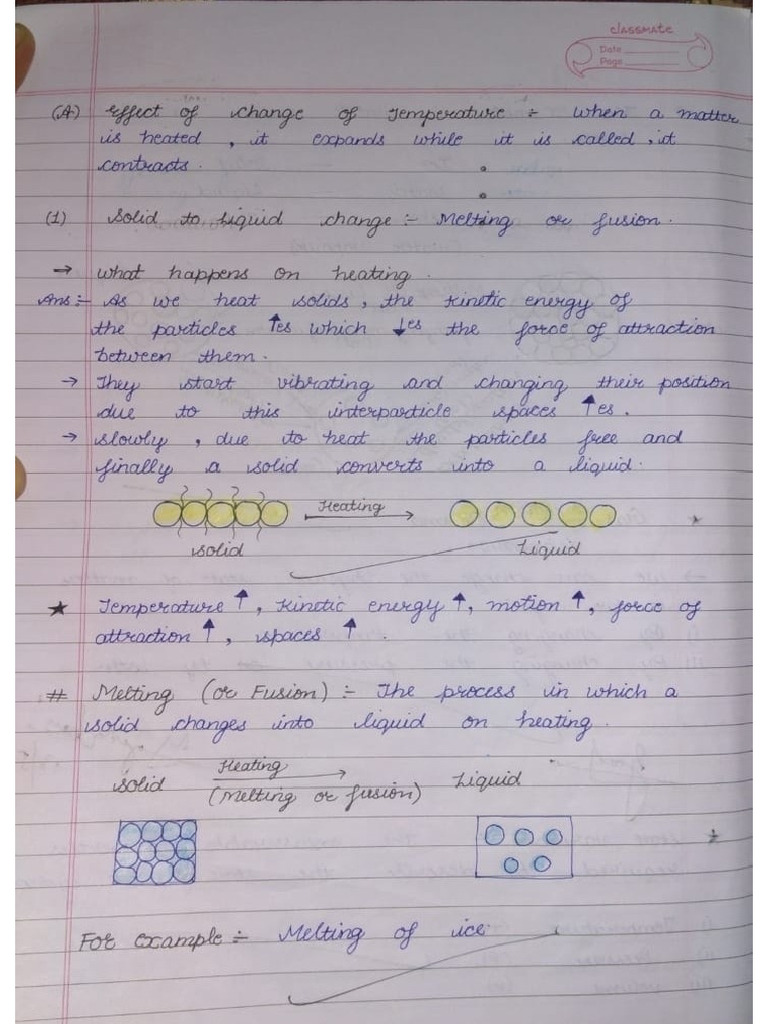 classmate
Date
Page
(A) Effect of change of Temperature :- when a matter
is heated, it expands while it is called, it
contracts.
(1) Solid to Liquid change :- Melting or fusion.
→ what happens on heating.
Ans :- As we heat solids, the kinetic energy of
the particles ↑es which ↓es the force of attraction
between them.
→ They start vibrating and changing their position
due to this interparticle spaces ↑es.
→ slowly, due to heat the particles free and
finally a solid converts into a liquid.
Heating
solid Liquid
★ Temperature ↑, Kinetic energy ↑, motion ↑, force of
attraction ↑, spaces ↑.
# Melting (or Fusion) :- The process in which a
solid changes into liquid on heating.
Heating
solid (Melting or fusion) Liquid
For example :- Melting of ice